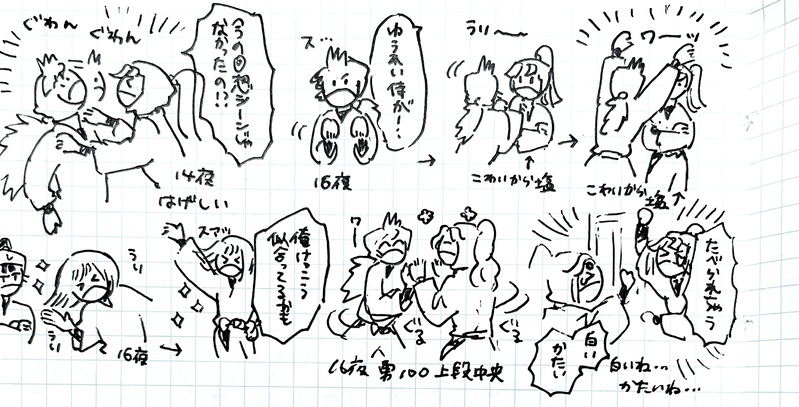 ぐわん
ぐわん
今の回想シーンじゃ
なかったの!?
14夜
はげしい
ス…
ゆうれい侍が!…
15夜
うりー
こわいから塩
ワーッ
こわいから塩
うり
うり
16夜
スアッ
俺けっこう
似合ってるかも
ワ
ぐる
ぐる
16夜 ヘ 勇100 上段中央
たべられちゃう
白い
かたい
白いね…
かたいね…